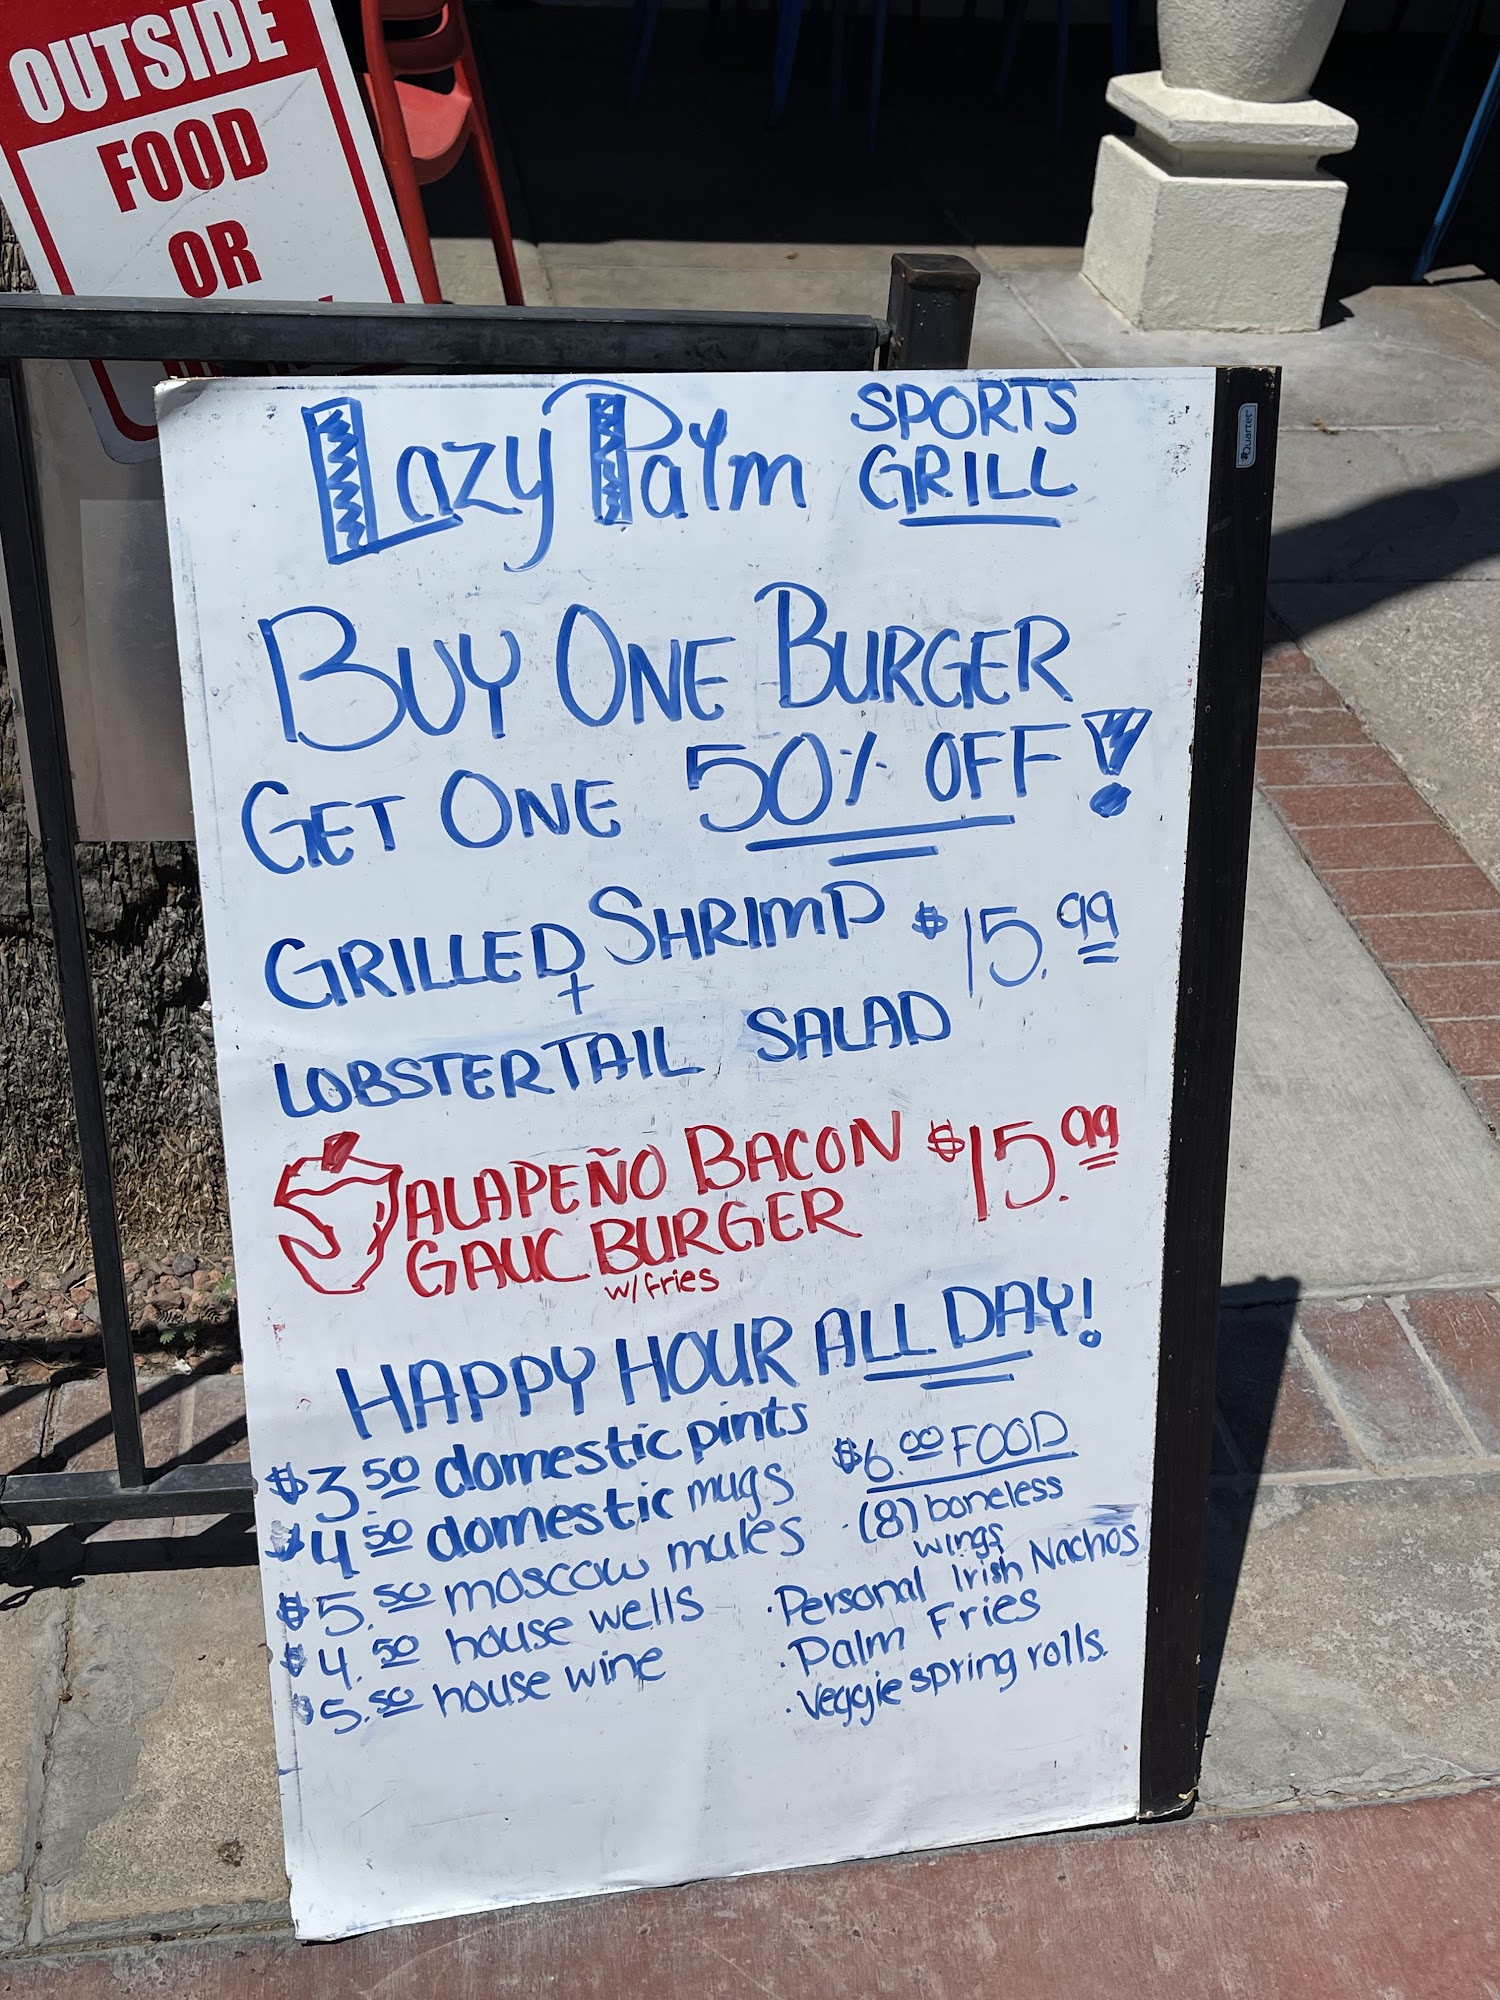 OUTSIDE
FOOD
OR
Quartet
Lazy Palm SPORTS
GRILL
BUY ONE BURGER
GET ONE 50% OFF!
GRILLED SHRIMP $15.99
+
LOBSTER TAIL SALAD
JALAPEÑO BACON $15.99
GAUC BURGER
w/fries
HAPPY HOUR ALL DAY!
$3.50 domestic pints
$4.50 domestic mugs
$5.50 moscow mules
$4.50 house wells
$5.50 house wine
$6.00 FOOD
· (8) boneless
wings
· Personal Irish Nachos
· Palm Fries
· Veggie spring rolls.